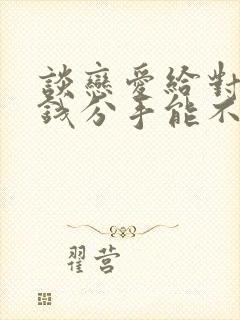 談戀愛給對
錢分手能不
翟营